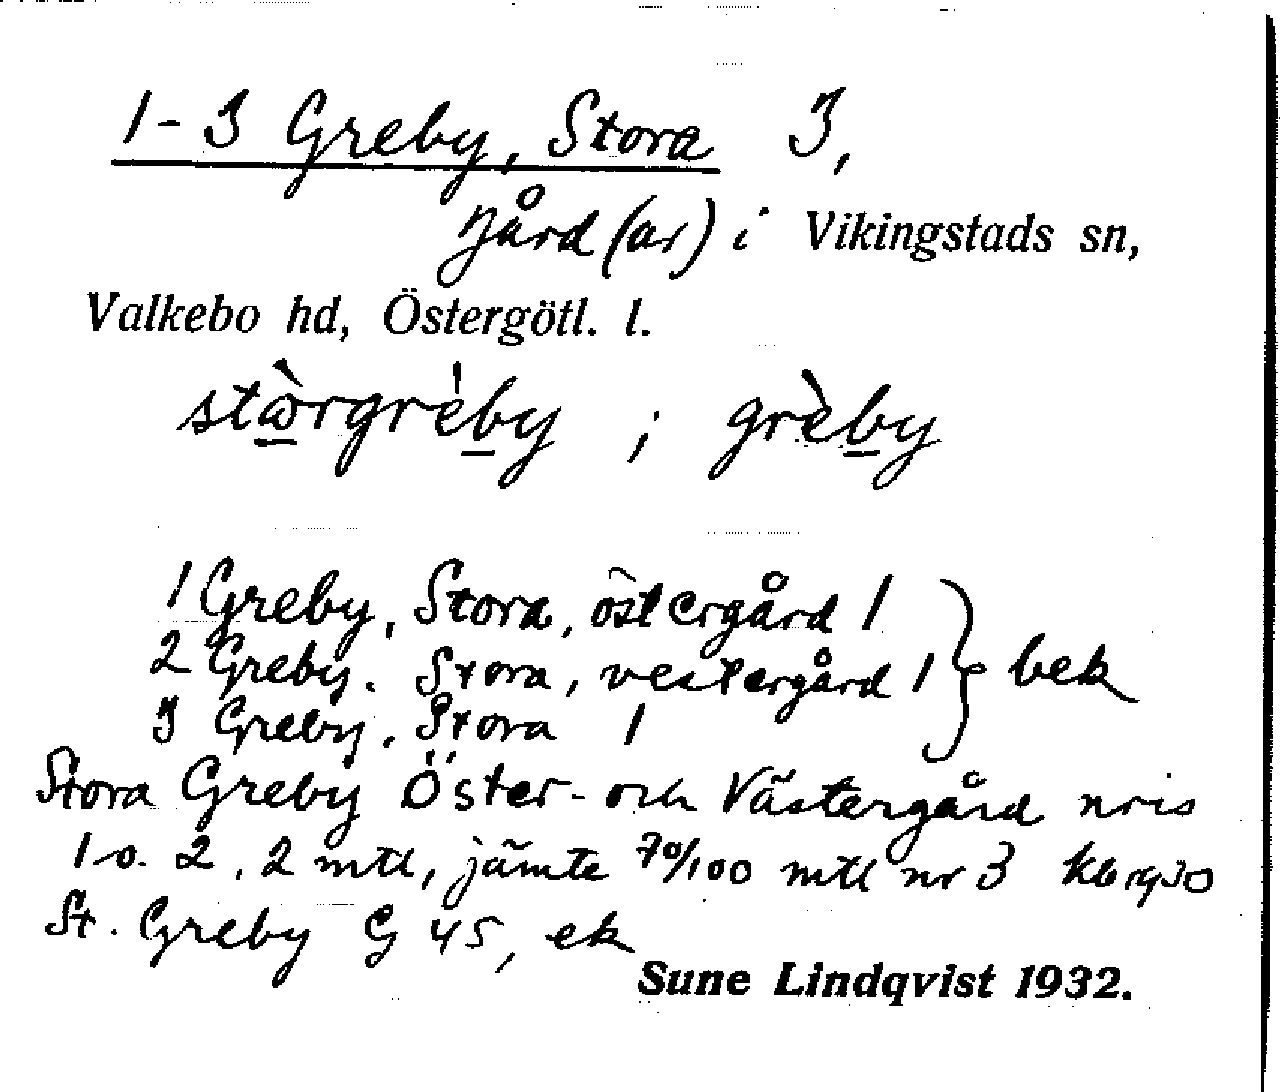 1-3 Greby, Stora 3,
gård (ar) i Vikingstads sn,
Valkebo hd, Östergötl. l.
stòrgrèby ; grèby
1 Greby, Stora, östergård 1
2 Greby, Stora, vestergård 1 } bek
3 Greby, Stora 1
Stora Greby Öster- och Västergård nris
1 o. 2, 2 mtl, jämte 70/100 mtl nr 3 kb 1930
St. Greby G 45, ek
Sune Lindqvist 1932.